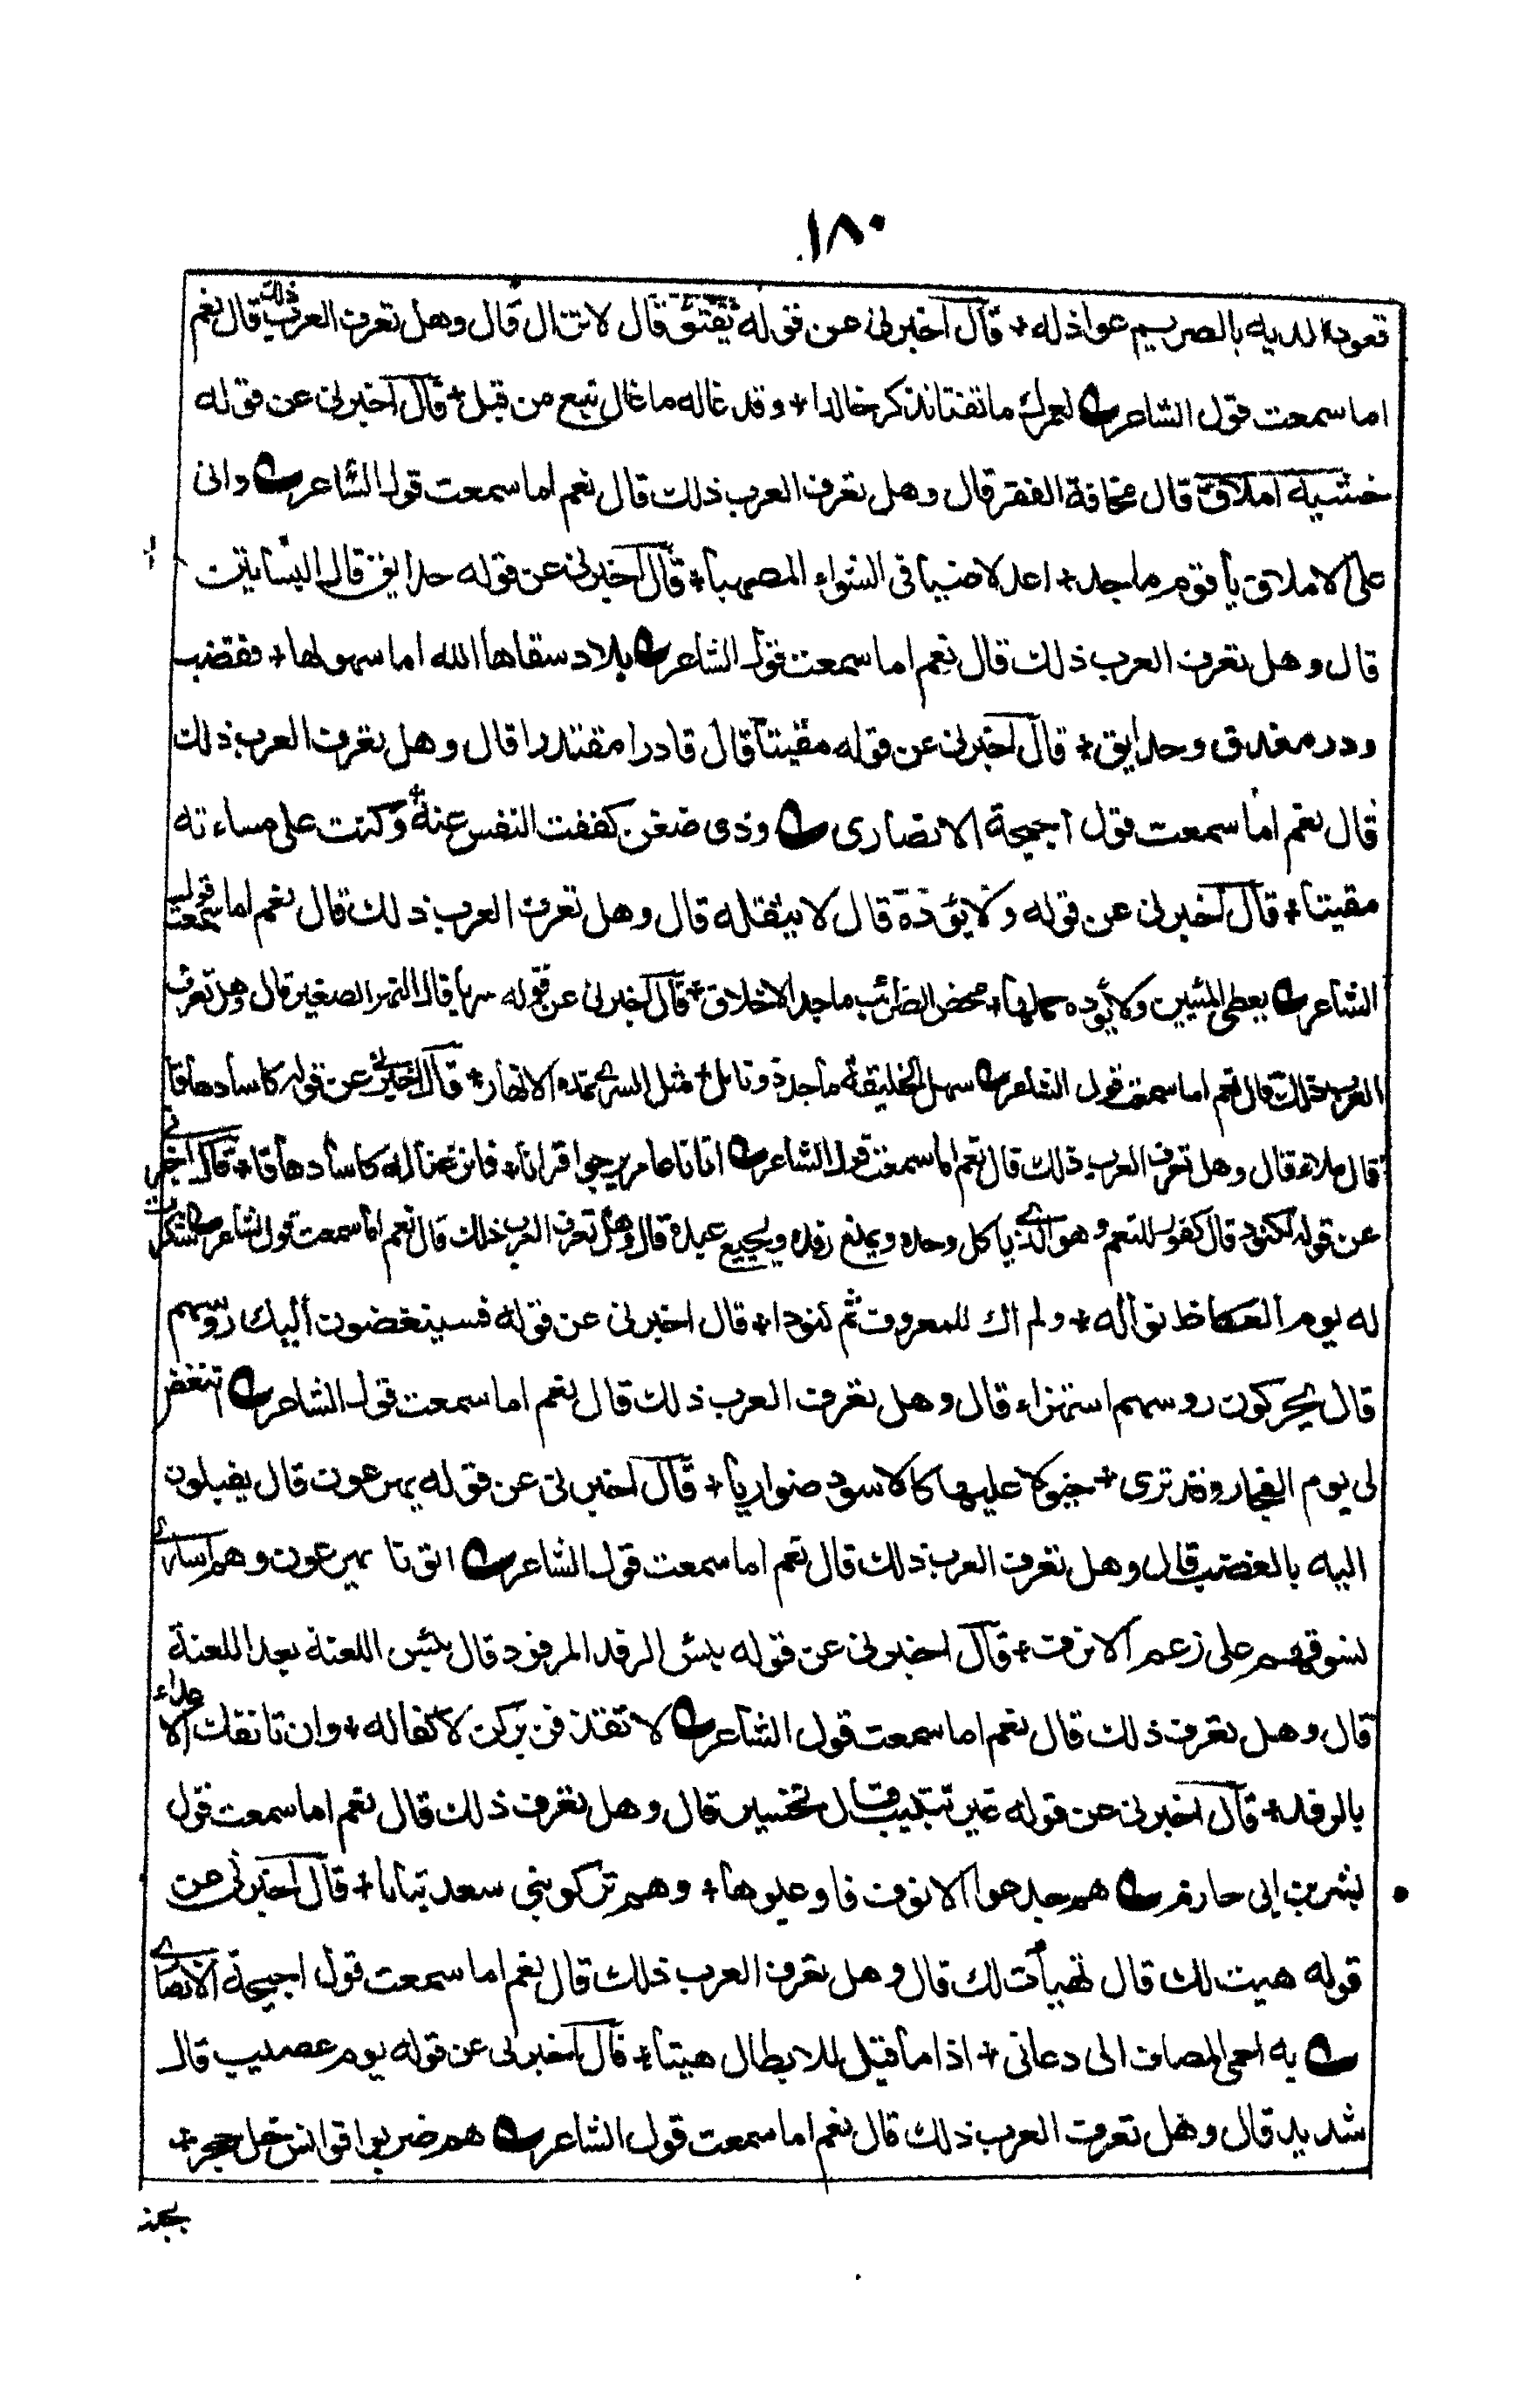 ١٨٠
قعودا لديه بالصريم عواذله + قال اخبرنى عن قوله تفتؤ قال لا تزال قال وهل تعرف العرب ذلك قال نعم
اما سمعت قول الشاعر لعمرك ما تفتا تذكر خالدا + وقد غاله ما غال تبع من قبل + قال اخبرنى عن قوله
خشية املاق قال مخافة الفقر قال وهل تعرف العرب ذلك قال نعم اما سمعت قول الشاعر وانى
على الاملاق يا قوم ماجد + اعد لاضيافى الشواء المصهبا + قال اخبرنى عن قوله حدايق قال البساتين
قال وهل تعرف العرب ذلك قال نعم اما سمعت قول الشاعر بلاد سقاها الله اما سهولها + فقضب
ودر مغدق وحدايق + قال اخبرنى عن قوله مقيتا قال قادرا مقتدرا قال وهل تعرف العرب ذلك
قال نعم اما سمعت قول احيحة الانصارى وذى ضغن كففت النفس عنه + وكنت على مساءته
مقيتا + قال اخبرنى عن قوله ولا يؤده قال لا يثقله قال وهل تعرف العرب ذلك قال نعم اما سمعت قول
الشاعر يعطى المئين ولا يؤده حملها + محض الضرائب ماجد الاخلاق + قال اخبرنى عن قوله سريا قال النهر الصغير قال وهل تعرف
العرب ذلك قال نعم اما سمعت قول الشاعر سهل الخليقة ماجد ذو نايل + مثل السرى تمده الانهار + قال اخبرنى عن قوله كاسا دهاقا
قال ملاء قال وهل تعرف العرب ذلك قال نعم اما سمعت قول الشاعر اتانا عامر يرجوا قرانا + فاترعنا له كاسا دهاقا + قال اخبرنى
عن قوله لكنود قال كفور للنعم وهو الذى ياكل وحده ويمنع رفده ويجيع عبده قال وهل تعرف العرب ذلك قال نعم اما سمعت قول الشاعر شكرت
له يوم العكاظ نواله + ولم اك للمعروف ثم كنودا + قال اخبرنى عن قوله فسينغضون اليك روسهم
قال يحركون روسهم استهزاء قال وهل تعرف العرب ذلك قال نعم اما سمعت قول الشاعر اتنغض
لى يوم الفجار وقد ترى + خيولا عليها كالاسود ضواريا + قال اخبرنى عن قوله يهرعون قال يقبلون
اليه بالغضب قال وهل تعرف العرب ذلك قال نعم اما سمعت قول الشاعر اتونا يهرعون وهم اسارى
نسوقهم على زعم الانوف + قال اخبرنى عن قوله بئس الرفد المرفود قال بئس اللعنة بعد اللعنة
قال وهل تعرف ذلك قال نعم اما سمعت قول الشاعر لا تقذفن بركن لا كفاله + وان تاثفك الاعداء
بالرفد + قال اخبرنى عن قوله غير تتبيب قال تخسير قال وهل تعرف ذلك قال نعم اما سمعت قول
بشر بن ابى حازم هم جدعوا الانوف فاوعبوها + وهم تركوا بنى سعد تبابا + قال اخبرنى عن
قوله هيت لك قال تهيأت لك قال وهل تعرف العرب ذلك قال نعم اما سمعت قول احيحة الانصارى
به احمى المصاف الى دعانى + اذا ما قيل للابطال هيتا + قال اخبرنى عن قوله يوم عصيب قال
شديد قال وهل تعرف العرب ذلك قال نعم اما سمعت قول الشاعر هم ضربوا قوانس خيل حجر +
بجنب